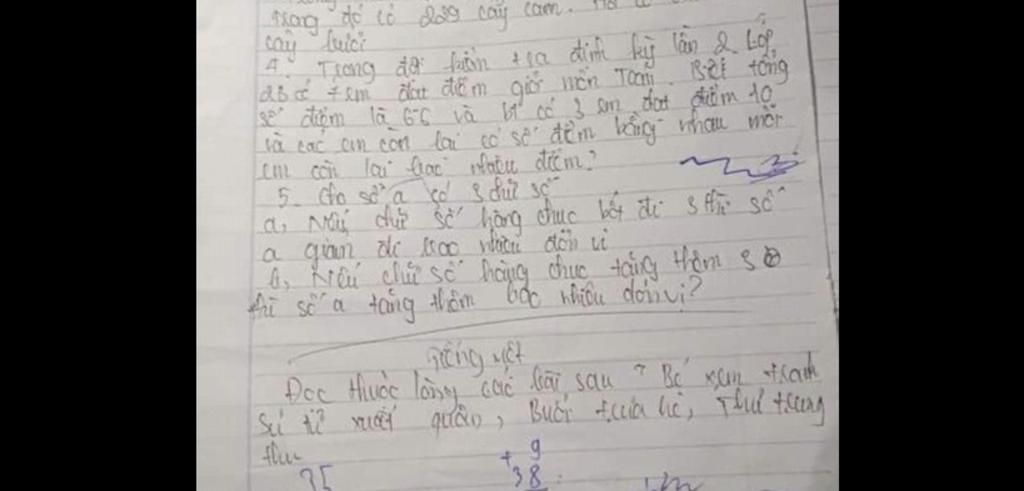 trong đó có 229 cây cam.
cây bưởi
4. Trong đợt kiểm tra định kỳ lần 2. Lớp
2B có 7 em đạt điểm giỏi môn Toán. Biết tổng
số điểm là 66 và có 3 em đạt điểm 10
và các em còn lại có số điểm bằng nhau mỗi
em còn lại bao nhiêu điểm?
5. Cho số a có 3 chữ số
a, Nếu chữ số hàng chục bớt đi 3 thì số
a giảm đi bao nhiêu đơn vị
b, Nếu chữ số hàng chục tăng thêm 3
thì số a tăng thêm bao nhiêu đơn vị?
Tiếng việt
Đọc thuộc lòng các bài sau: Bé xem tranh
Sư tử xuất quân, Buổi trưa hè, Thư trung
thu
35
+ 9
38